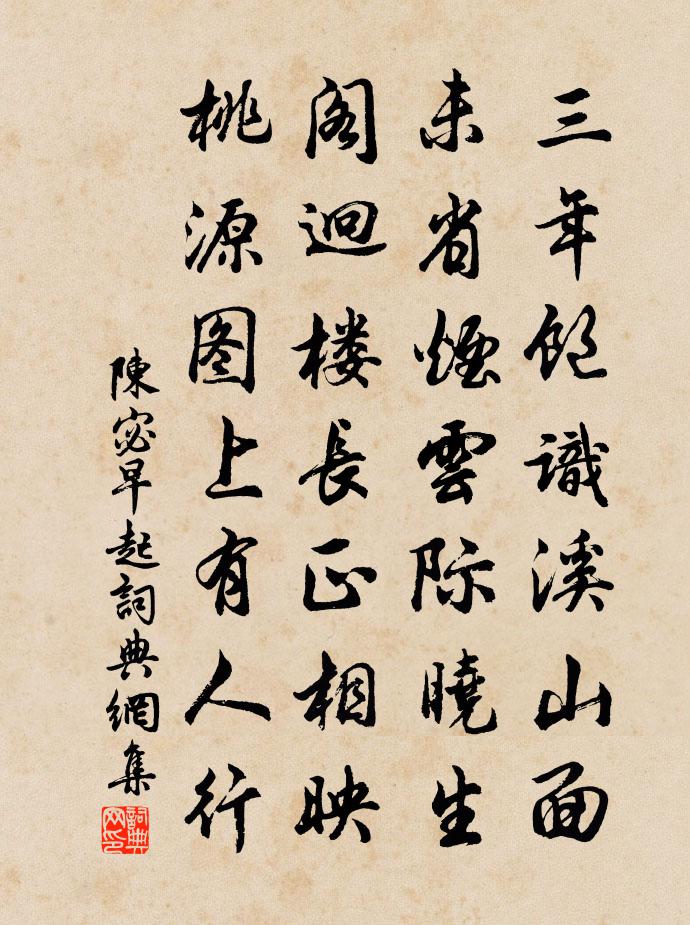 三年饱識溪山面
未省煙雲际曉生
阁迥楼長正相映
桃源图上有人行
陳宓早起詞典網集
詞典网印